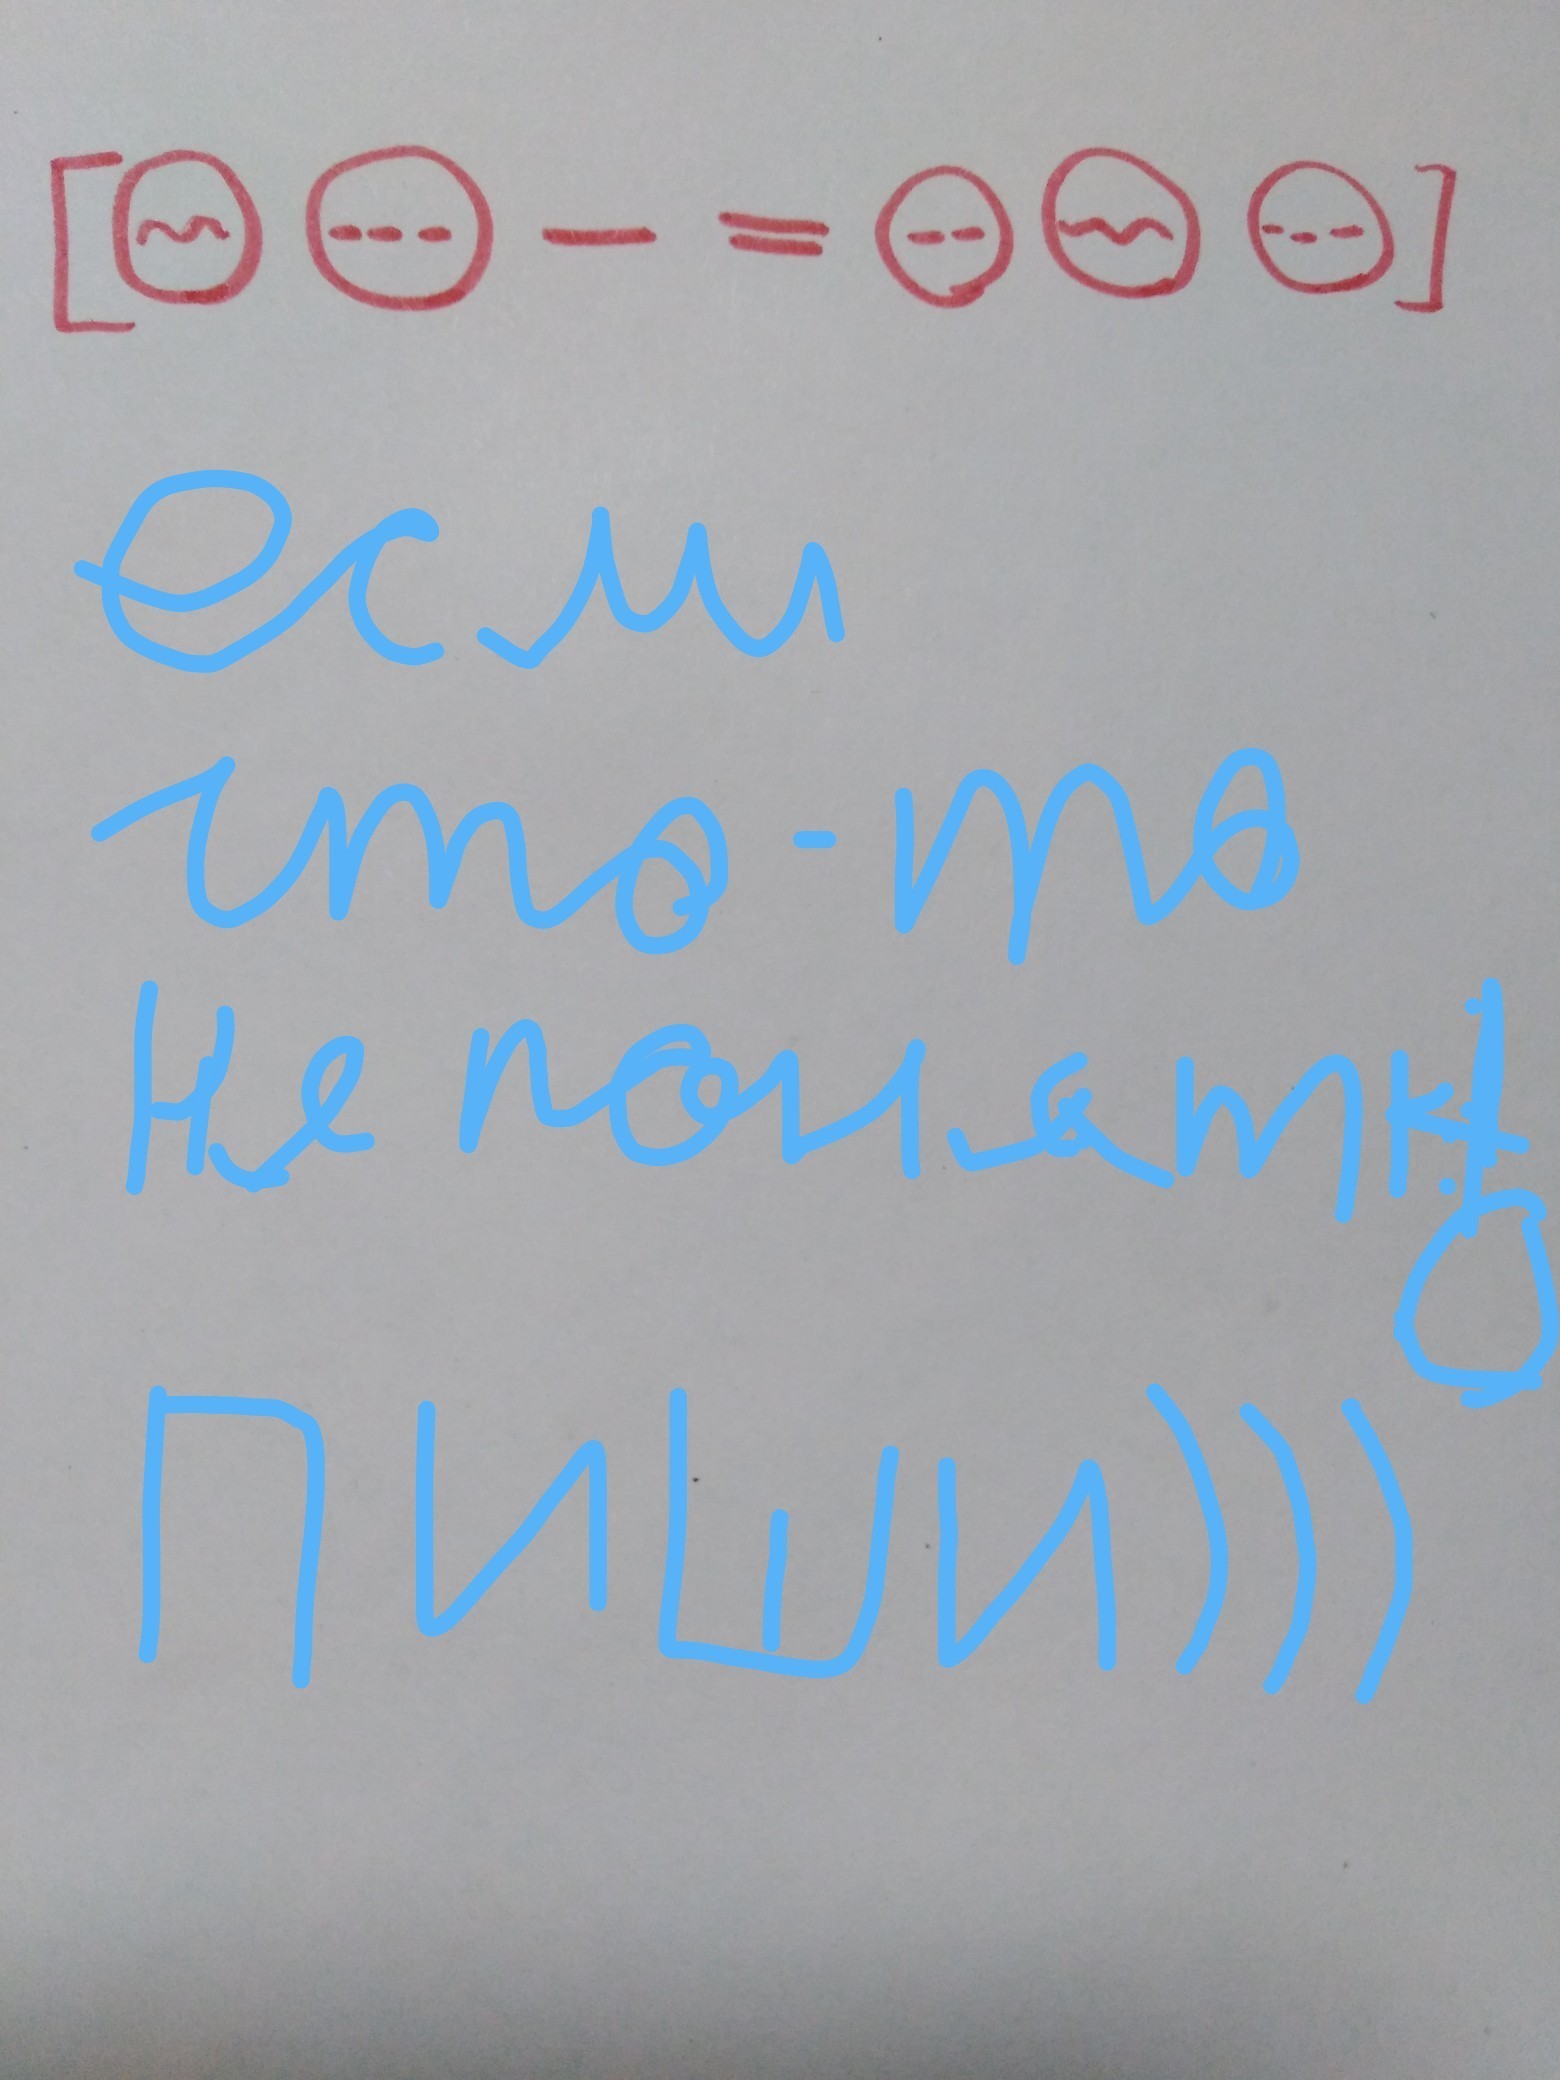 если
что-то
Не понятно
ПИШИ)))